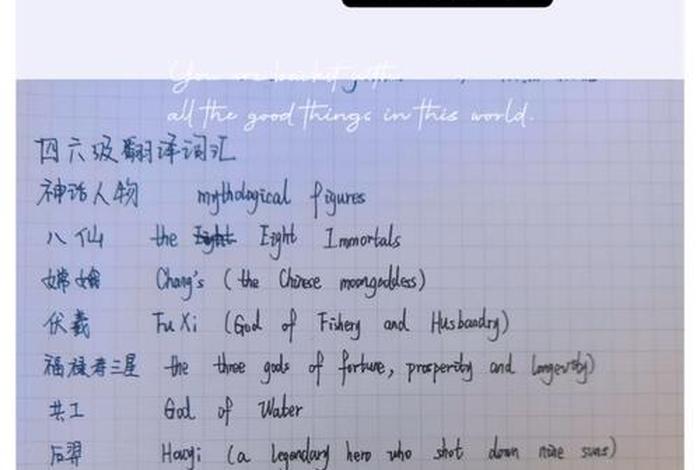 You are
all the good things in this world.
四六级翻译词汇
神话人物 mythological figures
八仙 the Eight Eight Immortals
嫦娥 Chang's (the Chinese moongoddess)
伏羲 Fu Xi (God of Fishery and Husbandry)
福禄寿三星 the three gods of fortune, prosperity and longevity)
共工 God of Water
后羿 Houyi (a legendary hero who shot down nine suns)